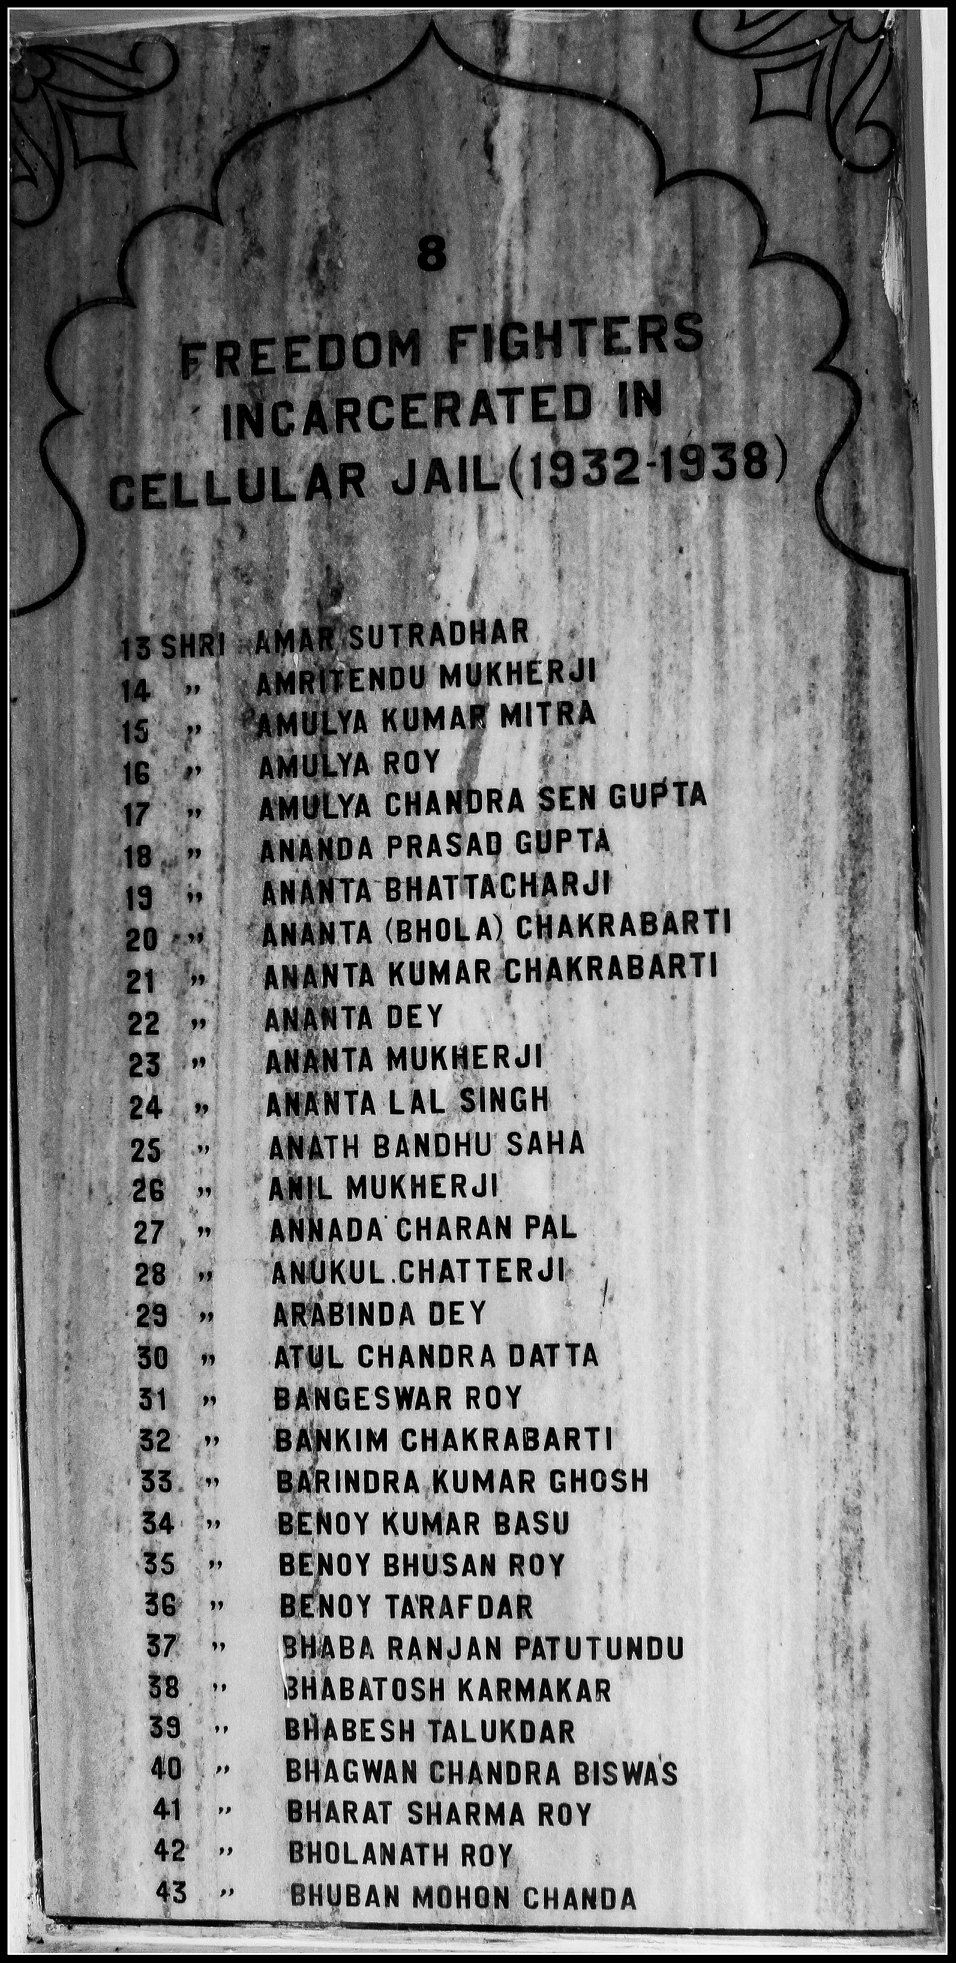 8
FREEDOM FIGHTERS
INCARCERATED IN
CELLULAR JAIL (1932-1938)
13 SHRI AMAR SUTRADHAR
14 " AMRITENDU MUKHERJI
15 " AMULYA KUMAR MITRA
16 " AMULYA ROY
17 " AMULYA CHANDRA SEN GUPTA
18 " ANANDA PRASAD GUPTA
19 " ANANTA BHATTACHARJI
20 " ANANTA (BHOLA) CHAKRABARTI
21 " ANANTA KUMAR CHAKRABARTI
22 " ANANTA DEY
23 " ANANTA MUKHERJI
24 " ANANTA LAL SINGH
25 " ANATH BANDHU SAHA
26 " ANIL MUKHERJI
27 " ANNADA CHARAN PAL
28 " ANUKUL CHATTERJI
29 " ARABINDA DEY
30 " ATUL CHANDRA DATTA
31 " BANGESWAR ROY
32 " BANKIM CHAKRABARTI
33 " BARINDRA KUMAR GHOSH
34 " BENOY KUMAR BASU
35 " BENOY BHUSAN ROY
36 " BENOY TARAFDAR
37 " BHABA RANJAN PATUTUNDU
38 " BHABATOSH KARMAKAR
39 " BHABESH TALUKDAR
40 " BHAGWAN CHANDRA BISWAS
41 " BHARAT SHARMA ROY
42 " BHOLANATH ROY
43 " BHUBAN MOHON CHANDA